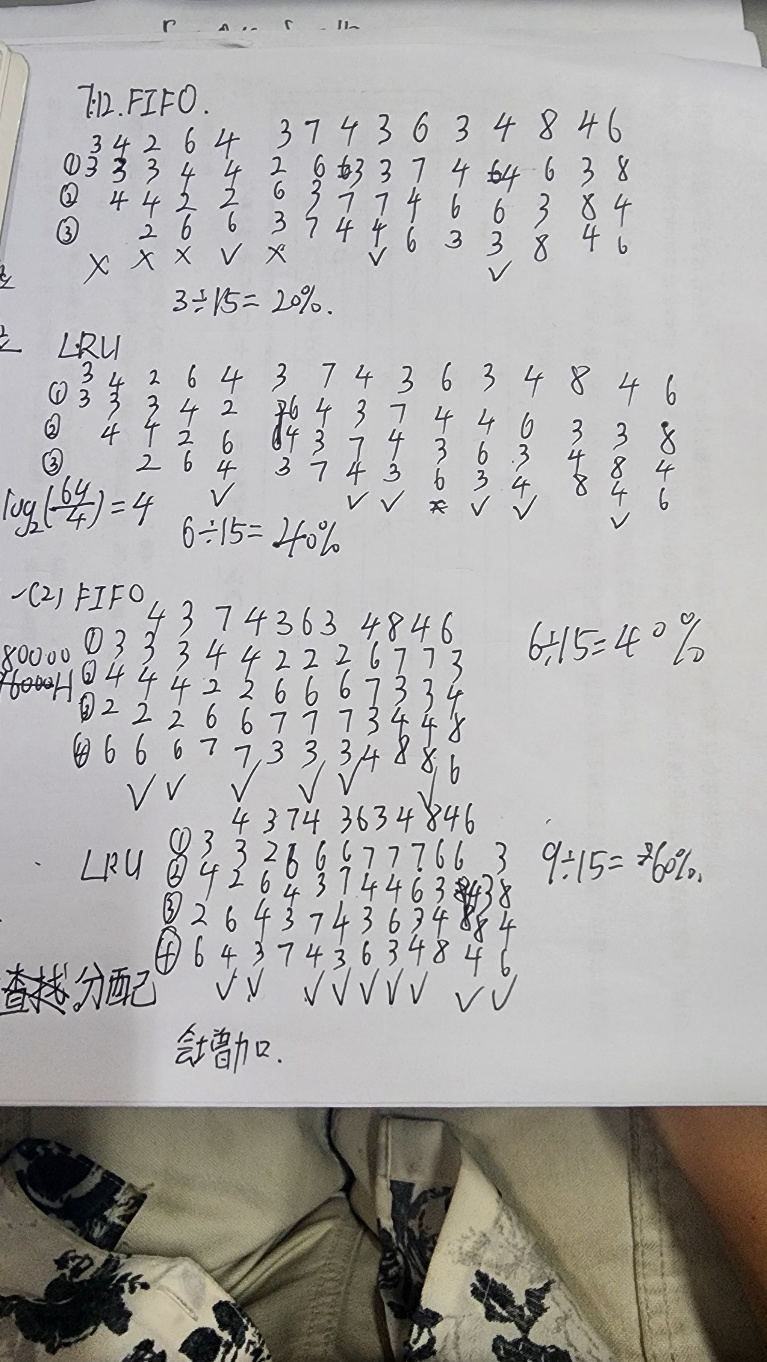 7.12. FIFO.
3 4 2 6 4 3 7 4 3 6 3 4 8 4 6
① 3 3 3 4 4 2 6 3 3 7 4 4 6 3 8
② 4 4 2 2 6 3 7 7 4 6 6 3 8 4
③ 2 6 6 3 7 4 4 6 3 3 8 4 6
X X X √ X √ √
3÷15=20%.
LRU
3 4 2 6 4 3 7 4 3 6 3 4 8 4 6
① 3 3 3 4 2 6 4 3 7 4 4 6 3 3 8
② 4 4 2 6 4 3 7 4 3 6 3 4 8 4
③ 2 6 4 3 7 4 3 6 3 4 8 4 6
√ √ √ √ √ √
log₂(64/4)=4
6÷15=40%
(2) FIFO
4 3 7 4 3 6 3 4 8 4 6
① 3 3 3 4 4 2 2 2 6 7 7 3
② 4 4 4 2 2 6 6 6 7 3 3 4
③ 2 2 2 6 6 7 7 7 3 4 4 8
④ 6 6 6 7 7 3 3 3 4 8 8 6
√ √ √ √ √ √
6÷15=40%
80000
4 3 7 4 3 6 3 4 8 4 6
LRU
① 3 3 2 6 6 6 7 7 7 6 6 3
② 4 2 6 4 3 7 4 4 6 3 3 8
③ 2 6 4 3 7 4 3 6 3 4 8 4
④ 6 4 3 7 4 3 6 3 4 8 4 6
√ √ √ √ √ √ √ √ √
9÷15=60%.
查找.分配
会增加.